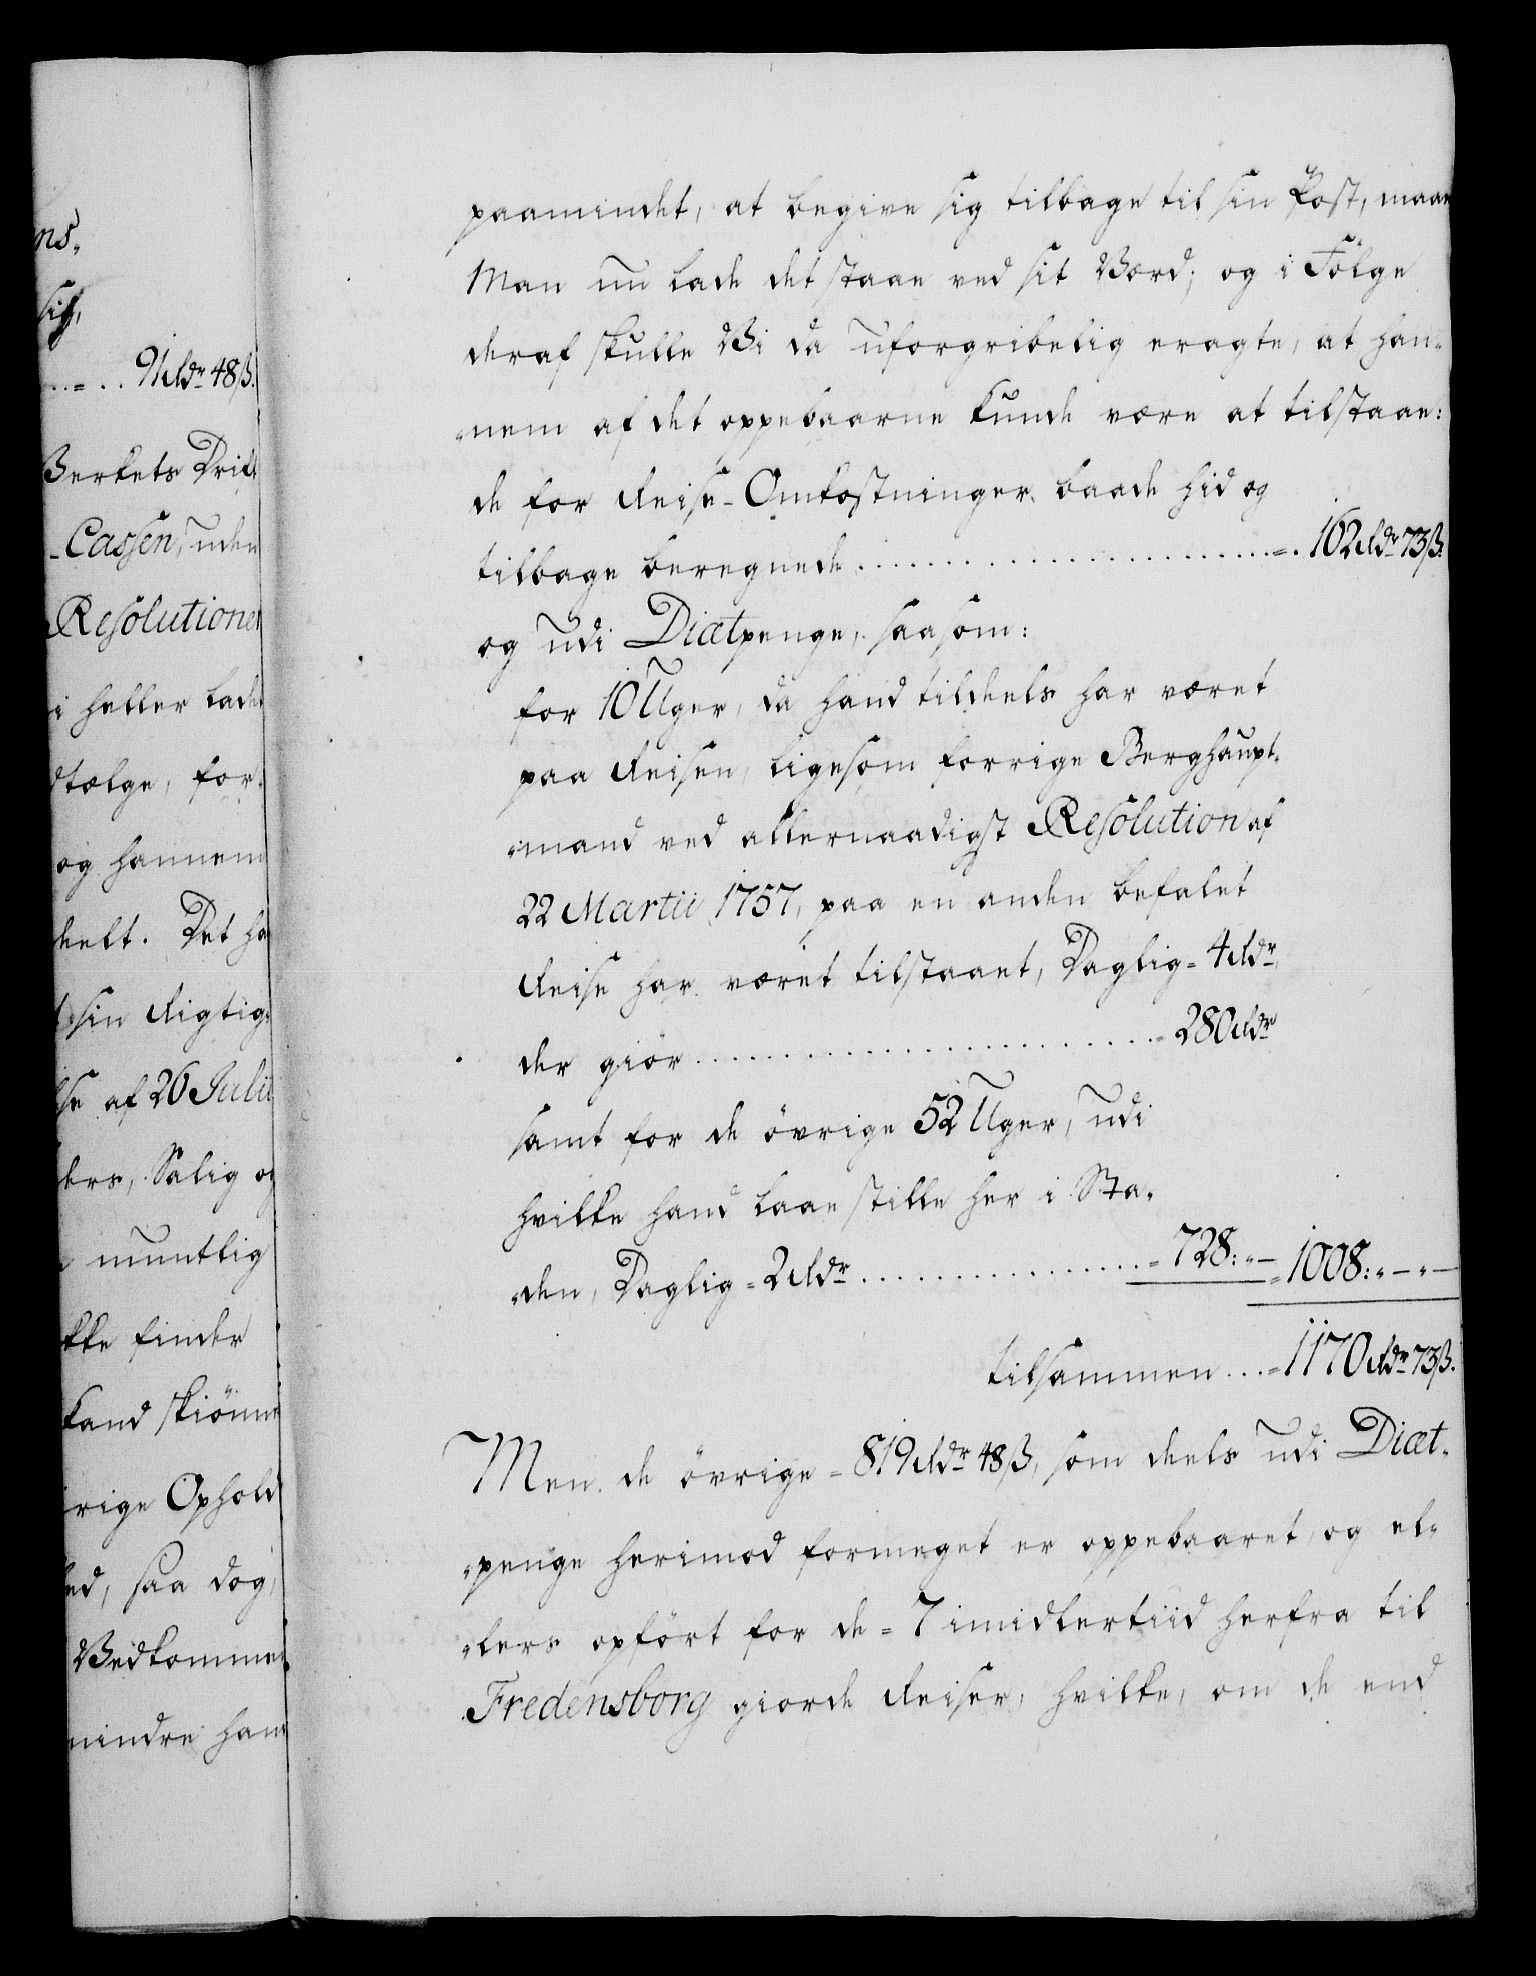 ns,
sig,
..=.. 91 Rdr 48 ß.
Berkets Drift
-Cassen, uden
Resolutioner
i heller lade
dtælge, for-
og hannem
deelt. Det ha
sin Rigtig-
lse af 26 Julii
ders, Salig og
muntlig
kke finder
kand skiönne
rige Ophold
ed, saa dog,
Vedkomme
mindre hand
paamindet, at begive sig tilbage til sin Post, maae
Man nu lade det staae ved sit Værd; og i Fölge
deraf skulle Vi da uforgribelig eragte, at han-
-nem af det oppebaarne kunde være at tilstaae:
de for Reise-Omkostninger baade hid og
tilbage beregnede ........................=. 162 Rdr 73 ß.
og udi Diætpenge, saasom:
for 10 Uger, da hand tildeels har været
paa Reisen, ligesom forrige Berghaupt-
-mand ved allernaadigst Resolution af
22 Martii 1757, paa en anden befalet
Reise har været tilstaaet, Daglig = 4 Rdr,
der giör ........................= 280 Rdr
samt for de övrige 52 Uger, udi
hvilke hand laae stille her i Sta-
-den, Daglig = 2 Rdr ................= 728:"— = 1008:"—"—
tilsammen ...= 1170 Rdr 73 ß.
Men de övrige = 819 Rdr 48 ß, som deels udi Diæt-
-penge herimod formeget er oppebaaret, og el-
-lers opfört for de = 7 imidlertiid herfra til
Fredensborg giorde Reiser, hvilke, om de end